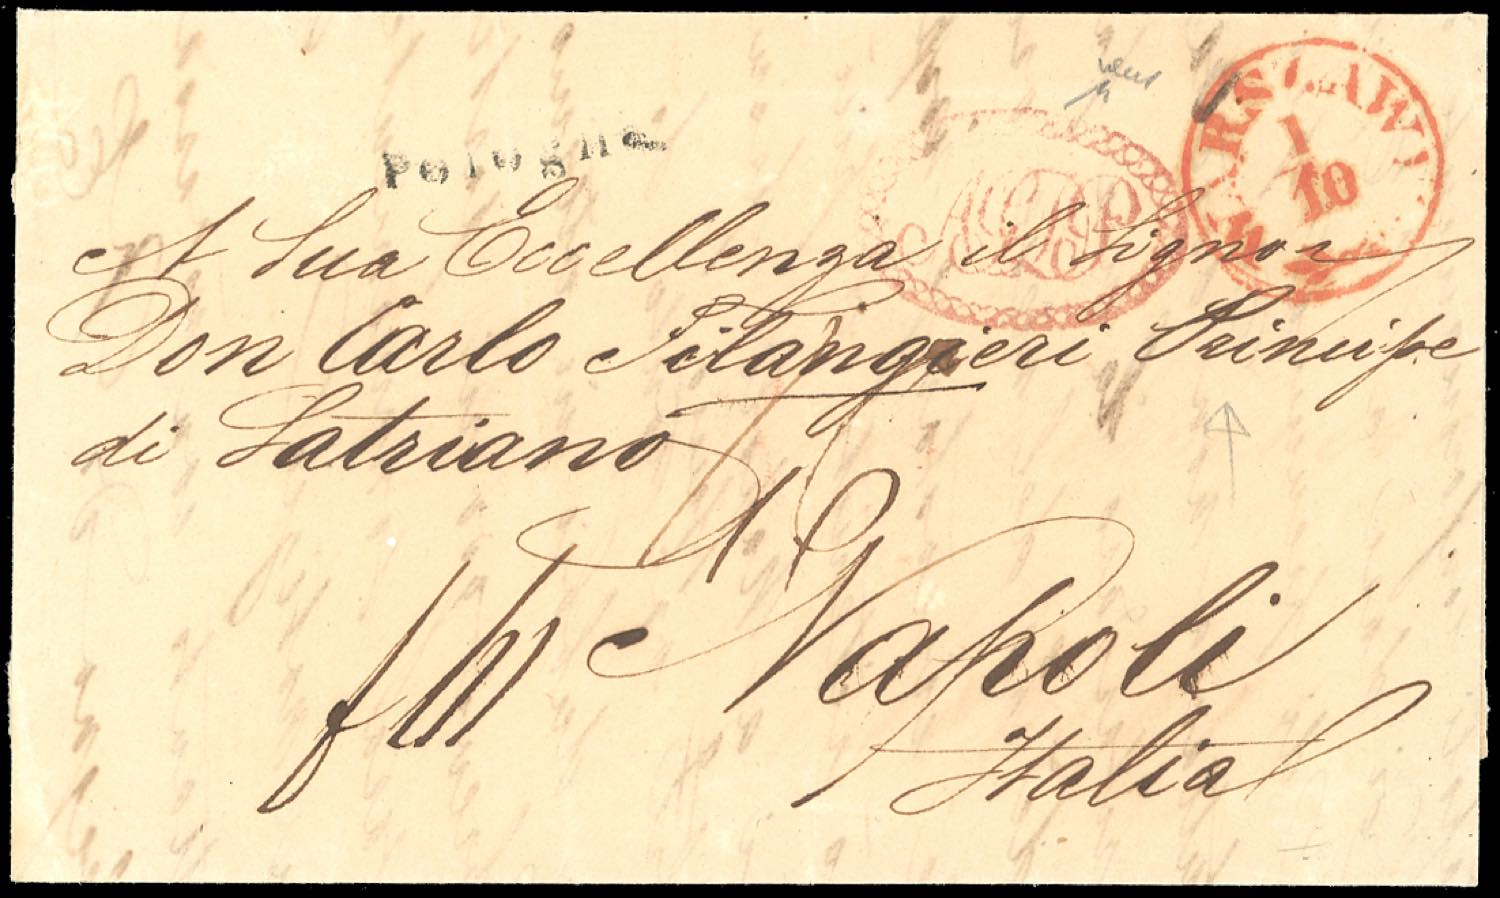 WARSZAWA
1
10
Pologne
AGDP
A Sua Eccellenza il Signor
Don Carlo Filangieri Principe
di Satriano
Napoli
Italia